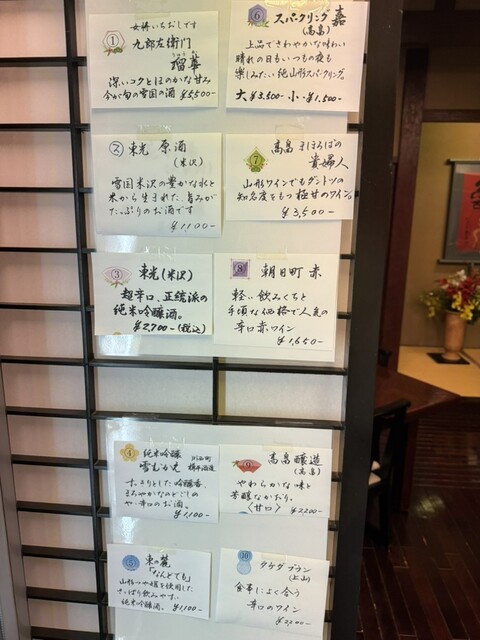 ① 女将いちおしです
九郎左衛門
瑠華
深いコクとほのかな甘み
今が旬の雪国の酒 ¥5,500-
② 東光 原酒
(米沢)
雪国米沢の豊かな水と
米から生まれた旨みが
たっぷりのお酒です
¥1,100-
③ 東光(米沢)
超辛口、正統派の
純米吟醸酒。
¥2,700-(税込)
④ 純米吟醸 川西町
雪むかえ 樽平酒造
すっきりとした吟醸香。
まろやかなのどごしの
や、辛口のお酒。
¥1,100-
⑤ 東の麓
「なんどでも」
山形つや姫を使用した
さっぱり飲みやすい
純米吟醸酒。 ¥1,100-
⑥ スパークリング 嘉
(高畠)
上品でさわやかな味わい
晴れの日もいつもの夜も
楽しみたい純山形スパークリング
大¥3,500- 小¥1,500-
⑦ 高畠 まほろばの
貴婦人
山形ワインでもダントツの
知名度をもつ極甘のワイン。
¥3,500-
8 朝日町 赤
軽い飲みくちと
手頃な価格で人気の
辛口赤ワイン
¥1,650-
9 高畠醸造
(高畠)
やわらかな味と
芳醇なかおり。
〈甘口〉 ¥2,200-
⑩ タケダ ブラン
(上山)
食事によく合う
辛口のワイン